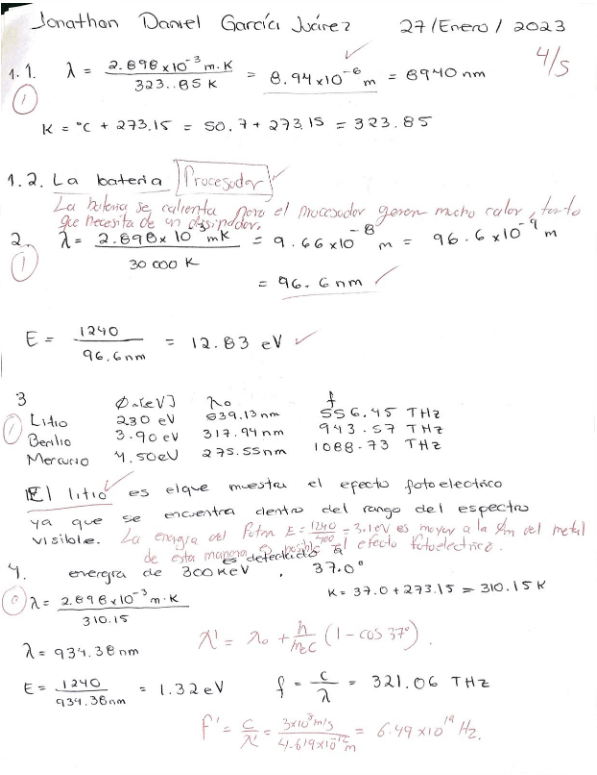 Jonathan Daniel García Juárez 27/Enero/2023
4/5
1.1. λ = 2.898x10^-3 m.K / 323.85 K = 8.94x10^-6 m = 8940 nm
1
K = °C + 273.15 = 50.7 + 273.15 = 323.85
1.2. La bateria Procesador
La bateria se calienta pero el procesador genera mucho calor, tanto
que necesita de un disipador.
2. λ = 2.898x10^-3 mK / 30 000 K = 9.66x10^-8 m = 96.6x10^-9 m
1
= 96.6 nm
E = 1240 / 96.6nm = 12.83 eV
3 Φ.[eV] λo f
1
Litio 2.30 eV 539.13nm 556.45 THz
Berilio 3.90 eV 317.94nm 943.57 THz
Mercurio 4.50eV 275.55nm 1088.73 THz
El litio es el que muestra el efecto fotoelectrico
ya que se encuentra dentro del rango del espectro
visible. La energía del foton E = 1240/400 = 3.1eV es mayor a la Φm del metal
de esta manera es posible el efecto fotoelectrico.
4. energia de 300KeV, es defectado a 37.0°
0
λ = 2.898x10^-3 m.K / 310.15 K = 37.0 + 273.15 = 310.15 K
λ = 934.38nm λ' = λo + h/mec (1 - cos 37°).
E = 1240 / 934.38nm = 1.32 eV f = c/λ = 321.06 THz
f' = c/λ' = 3x10^8 m/s / 4.619x10^-12 m = 6.49x10^19 Hz.